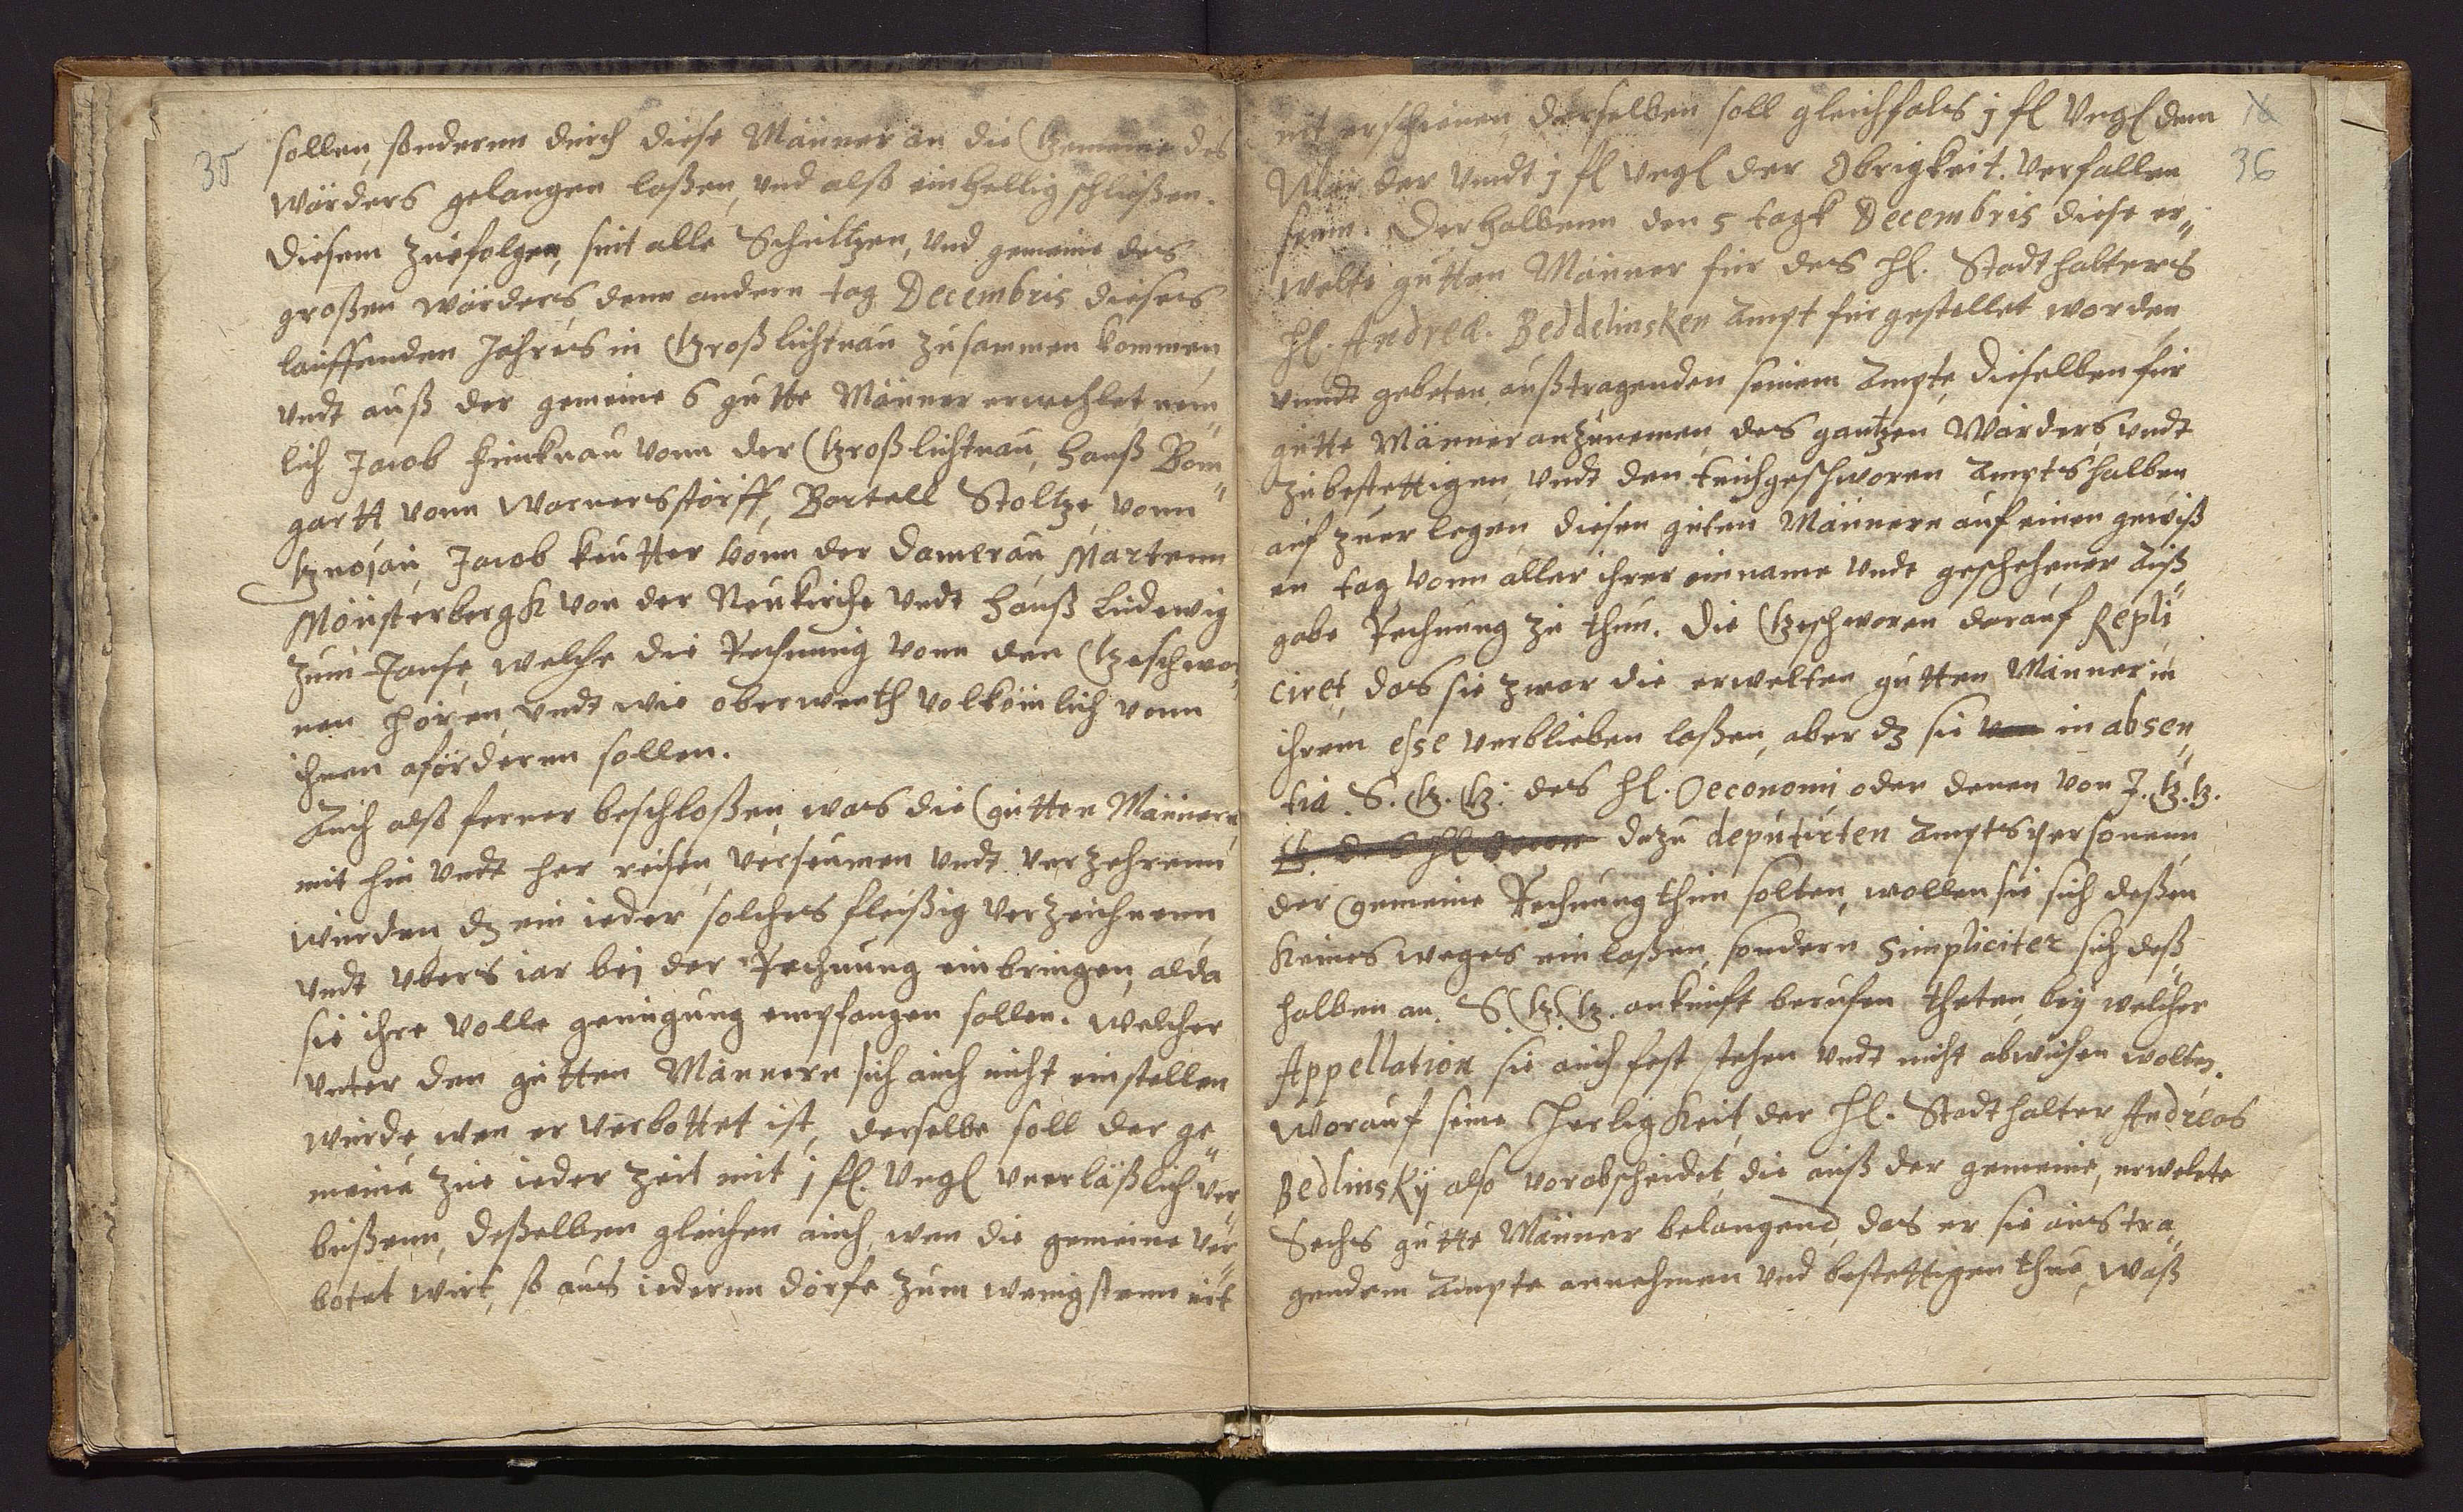 35
sollen, sonderen durch diese Männer an die Gemeine des
Wärders gelangen laßen, und alß einhellig schließen.
Diesem zuefolgen, sint alle Schultzen, und gemeine des
großen Wärders, denn andern tag Decembris dieses
lauffenden Jahres in Großlichtnau zusammen kommen,
undt auß der gemeine 6 gutte Männer erwehlet nem„
lich Jacob Funknau vonn der Großlichtnau, Hanß Bom„
gartt vonn Warnersstorff, Bartell Stoltze, vonn
Gnojau, Jacob Keutter vonn der Damerau, Martenn
Mönsterbergk von der Neukirche undt Hanß Ludewig
zum Tanse, welche die Rechnung vonn den Geschwo„
nen hören, undt wie oberwenth volkömlich vonn
ihnen aförderen sollen.
Auch alß ferner beschloßen, was die gutten Männern,
mit hin undt her reisen, verseumen undt verzehrenn
würden, dz ein ieder solches fleißig verzeichnenn,
undt ubers iar bej der Rechnung einbringen, alda
sie ihre volle genugung empfangen sollen. Welcher
unter den gutten Männern sich auch nicht einstellen
würde, wen er verbottet ist, derselbe soll der ge„
meine zue ieder Zeit mit j fl. Ungl unerläßlich ver„
bußenn, deßelben gleichen auch, wen die gemeine ver„
botet wirt, so aus iederm dorfe zum wenigstenn nit
16
36
nit erschienen, derselben soll gleichfals j fl Ungl dem
Wär der undt j fl Ungl der Obrigkeit. verfallen
seinn. Derhalbenn den 5 tagk Decembris diese er„
welte gutten Männer für des Hl. Stadthalters
Hl. Andreæ. Beddelinsken Ampt für gestellet worden,
unndt gebeten, außtragenden seinem Ampte, dieselben für
gutte Männer anzunemen, des gantzen Wärders, undt
zubestettigen, undt den teichgeschworen Ampts halben
auf zuer legen, diesen guten Männern auf einen gewiß
en tag vonn aller ihrer einname undt geschehener Auß„
gabe Rechnung zu thun. Die Geschworen darauf Repli„
ciret, das sie zwar die erwelten gutten Männer in
ihrem esse verblieben laßen, aber dz sie in absen„
tia S. G. G. des Hl. Oeconomi, oder denen von J. G. G.
dazu deputirten Amptspersonenn
der gemeine Rechnung thun solten, wollen sie sich deßen
keines weges einlaßen, sondern Simpliciter sich deß„
halben an. S. G. G. ankunft berufen theten, bey welcher
Appellation sie auch fest stehen undt nicht abwichen wolten.
Worauf seine Herligkeit, der Hl. Stadthalter Andreas
Bedlinsky also vorabscheidet, die auß der gemeine, erwelete
Sechs gutte Männer belangend, das er sie austra„
gendem Ampte annehmen und bestettigen thue, waß